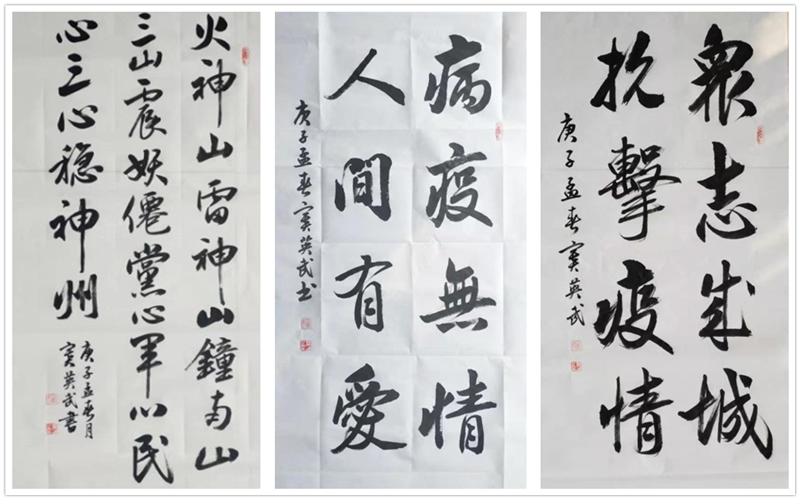 火神山雷神山鐘南山
三山震妖僊黨心軍心民
心三心穩神州
庚子孟春月
窦英武書
病疫無情
人間有愛
庚子孟春窦英武书
眾志成城
抗擊疫情
庚子孟春窦英武